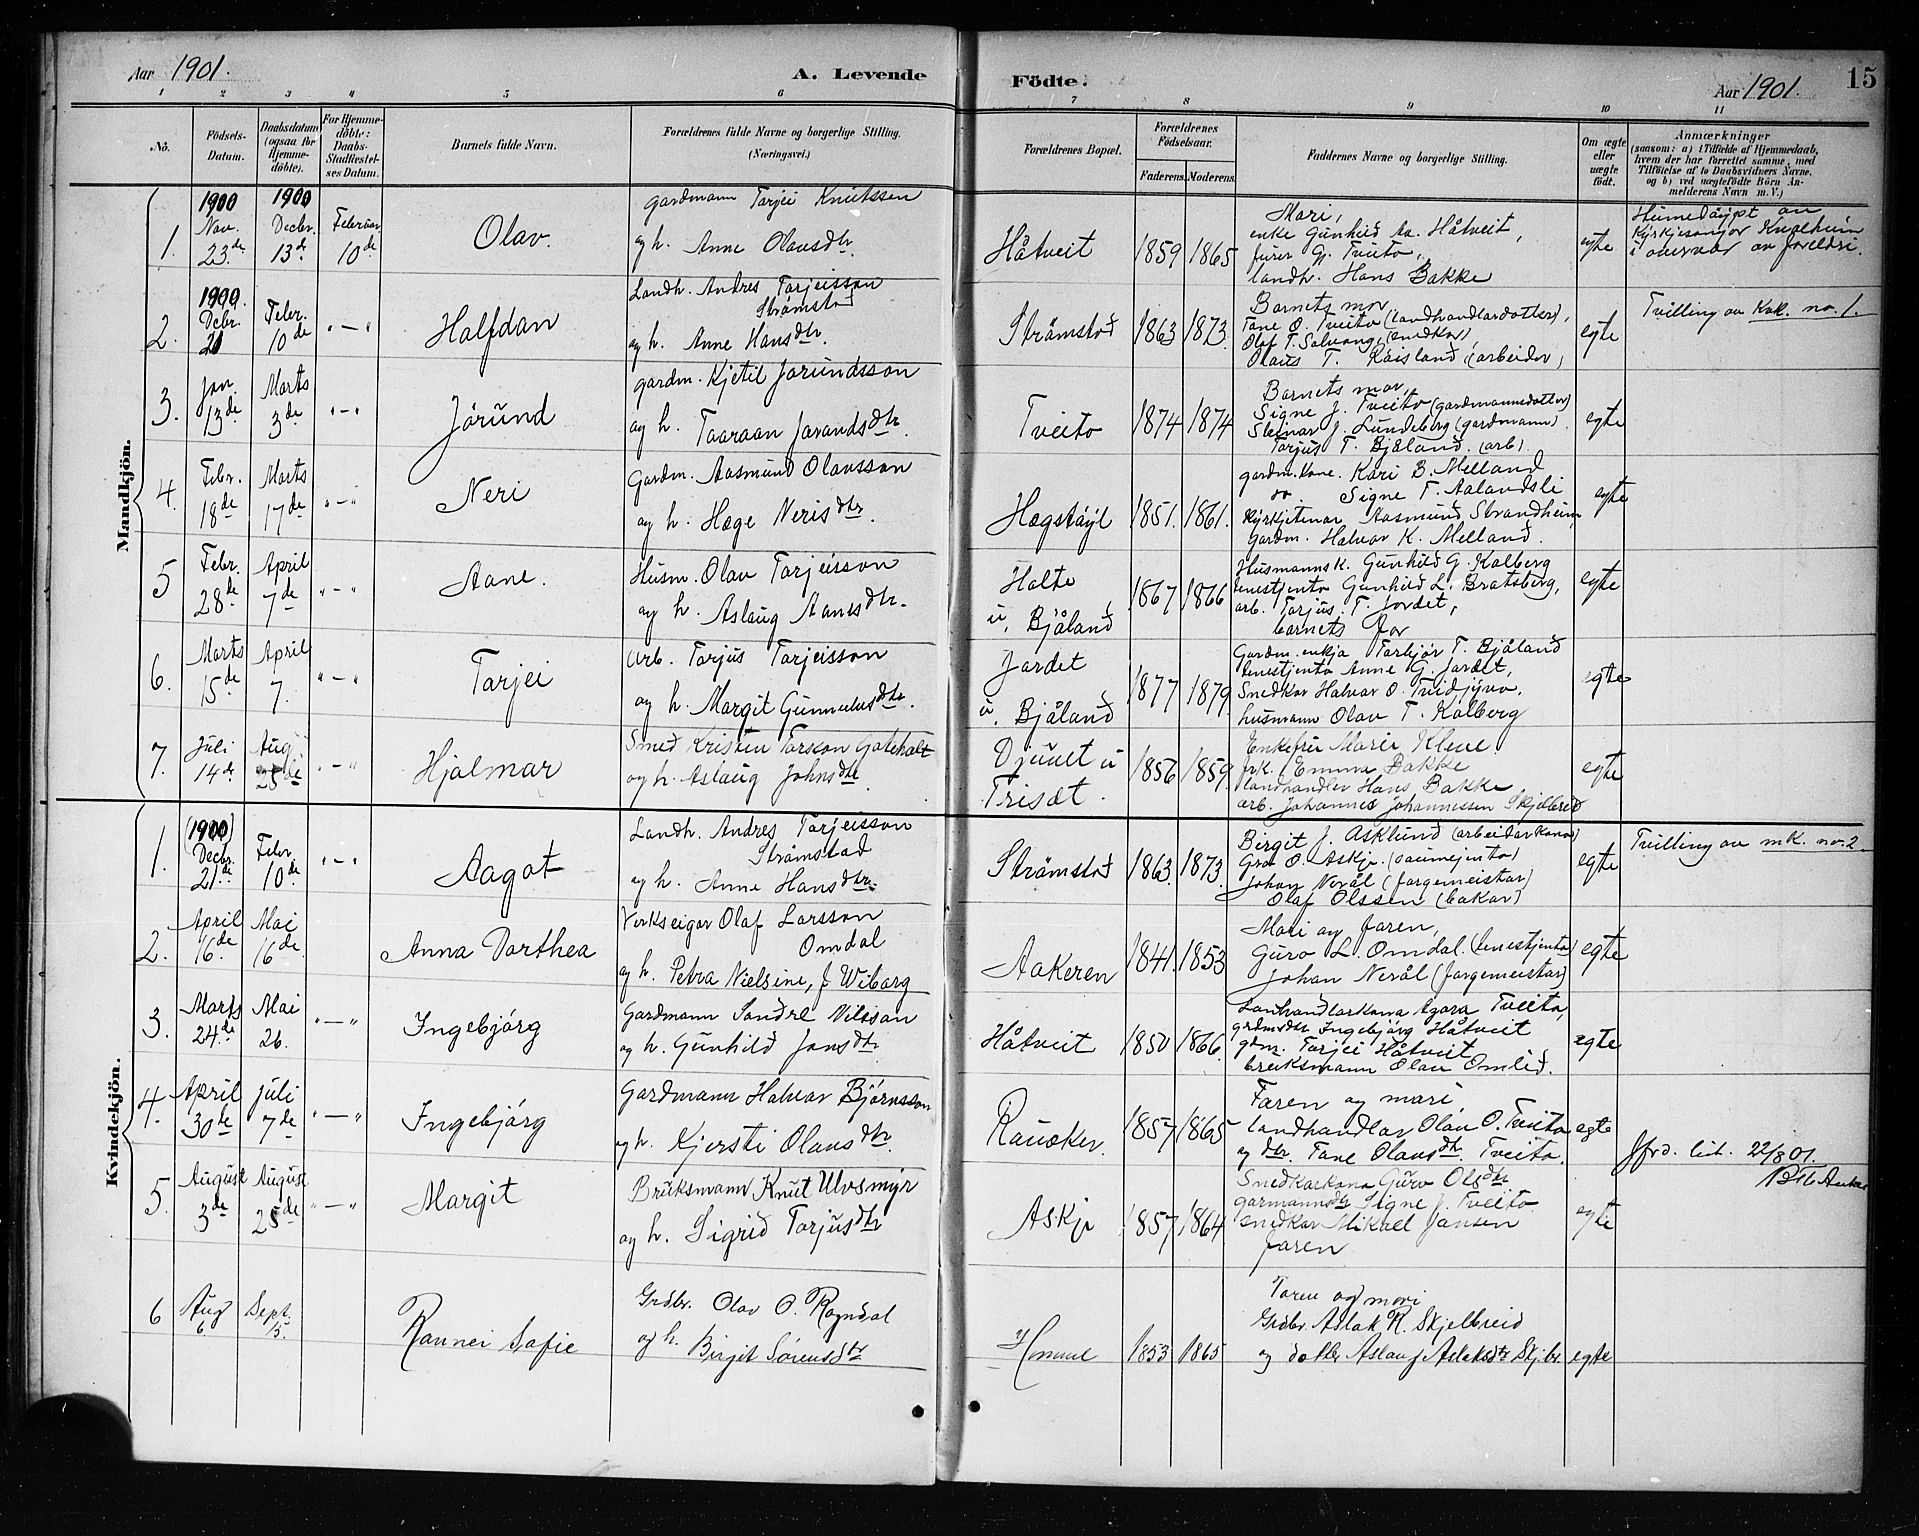 Aar 1901.
A. Levende
Födte.
Aar 1901.
15
1 2 3 4 5 6 7 8 9 10 11
Nô.
Födsels-
Datum.
Daabsdatum
(ogsaa for
Hjemme-
döbte).
For Hjemme-
döbte:
Daabs-
Stadfæstel-
ses Datum.
Barnets fulde Navn.
Forældrenes fulde Navne og borgerlige Stilling.
(Næringsvei.)
Forældrenes Bopæl.
Forældrenes
Födselsaar.
Faderens. Moderens.
Faddernes Navne og borgerlige Stilling.
Om ægte
eller
uægte
födt.
Anmærkninger
(saasom: a) i Tilfælde af Hjemmedaab,
hvem der har forrettet samme, med
Tilföielse af to Daabsvidners Navne,
og b) ved uægtefödte Börn An-
melderens Navn m. V.)
Mandkjön.
1.
1900
Nov.
23de
1900
Decbr.
13de
Februar
10de
Olav.
gardmann Tarjei Knutsson
og h. Anne Olavsdtr.
Håtveit
1859
1865
Mori,
enke Gunhild Håtveit,
furer Gj. Tveito,
landh. Hans Bakke
egte
Heimedøypt av
Kyrkjesongor Kvålheim
i overvær av foreldri.
2.
1900.
Decbr.
21
Febr.
10de
" — "
Halfdan
Landh. Andres Tarjeisson
Strømstad
og h. Anne Hansdtr.
Strømstad
1863
1873
Barnets mor,
Tone O. Tveito (landhandlardotter),
Olaf T. Salvong, (snedkar)
Olaus T. Raisland, (arbeider)
egte
Tvilling av Kvk. no. 1.
3.
Jan
13de
Marts
3de
" — "
Jørund
gardm. Kjetil Jørundsson
og h. Taaraan Jørandsdtr.
Tveito
1874
1874
Barnets mor,
Signe J. Tveito (gardmannsdotter)
Steinar J. Lundeberg (gardmann)
Tarjus T. Bjåland (arb).
egte
4.
Febr.
18de
Marts
17de
" — "
Neri
Gardm. Aasmund Olavsson
og h. Hæge Nerisdtr.
Hægstøyl
1851.
1861.
gardm.kone Kari B. Melland
do Signe T. Aalandsli
Kyrkjetenar Aasmund Strandheim
Gardm. Halvar K. Melland.
egte
5
Febr.
28de
April
7de
" — "
Aane.
Husm. Olav Tarjeisson
og h. Aslaug Aanesdtr.
Holte
u. Bjåland
1867
1866
Husmannsk. Gunhild G. Kalberg
tenestjenta Gunhild L. Bratsberg,
arb. Tarjus T. Jordet,
barnets far
egte
6.
Marts
15de
April
7.
" — "
Tarjei
Arb. Tarjus Tarjeisson
og h. Margit Gunnulvsdtr.
Jordet
u. Bjåland
1877
1879
Gardm.enkja Torbjør T. Bjåland
tenestjenta Anne G. Jordet,
Snedkar Halvar O.
husmann Olav T. Kalberg
egte
7.
Juli
14de
Aug
25de
" — "
Hjalmar
Smed Kristen Tarsson Gateholt
og h. Aslaug Johnsdtr.
Djuvet u
Trisæt.
1856
1859
Enkefru Marie Kleve
frk. Emma Bakke
Landhandler Hans Bakke
arb. Johannes Johannessen Skjelbreid
egte
Kvindekjön.
1.
(1900)
Decbr.
21de
Febr
10de
" — "
Aagot
Landh. Andres Tarjeisson
Strømstad
og h. Anne Hansdtr.
Strømstad
1863.
1873.
Birgit J. Asklund (arbeidarkona)
Gro O. Askje. (saumejenta)
Johan Nerål (fargemeistar)
Olaf Olssen (bakar)
egte
Tvilling av mk. no. 2.
2.
April
16de
Mai
16de
Anna Dorthea
Verkseigar Olaf Larsson
Omdal
og h. Petra Nielsine, f. Wiborg
Aakeren
1841.
1853
Mori og faren,
Guro L. Omdal. (tenestjenta)
Johan Nerål (fargemeistar)
egte
3.
Marts
24de
Mai
26.
" — "
Ingebjørg
Gardmann Sondre Nilsson
og h. Gunhild Jonsdtr.
Håtveit
1850
1866
Landhandlarkona Agara Tveito,
grdmsdtr Ingebjørg Håtveit
gdm. Tarjei Håtveit
bruksmann Olav Omlid.
egte
4.
April
30de
juli
7de
" — "
Ingebjørg
Gardmann Halvar Bjørnsson
og h. Kjersti Olavsdtr.
Rauoker.
1857
1865
Faren og mori
landhandlar Olav O. Tveito
og dtr. Tone Olavsdtr. Tveito.
egte
Jfrd. list. 22/8 01.
5
August
3de
August
25de
" — "
Margit
Bruksmann Knut Ulvsmyr
og h. Sigrid Tarjusdtr
Askje
1857
1864
Snedkarkona Guro Olsdtr
garmannsdtr Signe J. Tveito
snedkar Mikael Jansen
faren
egte
6
Aug
6
Sept.
15.
Rannei Sofie
Grdbr. Olav O. Rogndal
og h. Birgit Sørensdtr
1853
1865
Faren og mori
Grdbr. Aslak R. Skjelbreid
og dotter Aslaug Aslaksdtr Skjbr.
egte